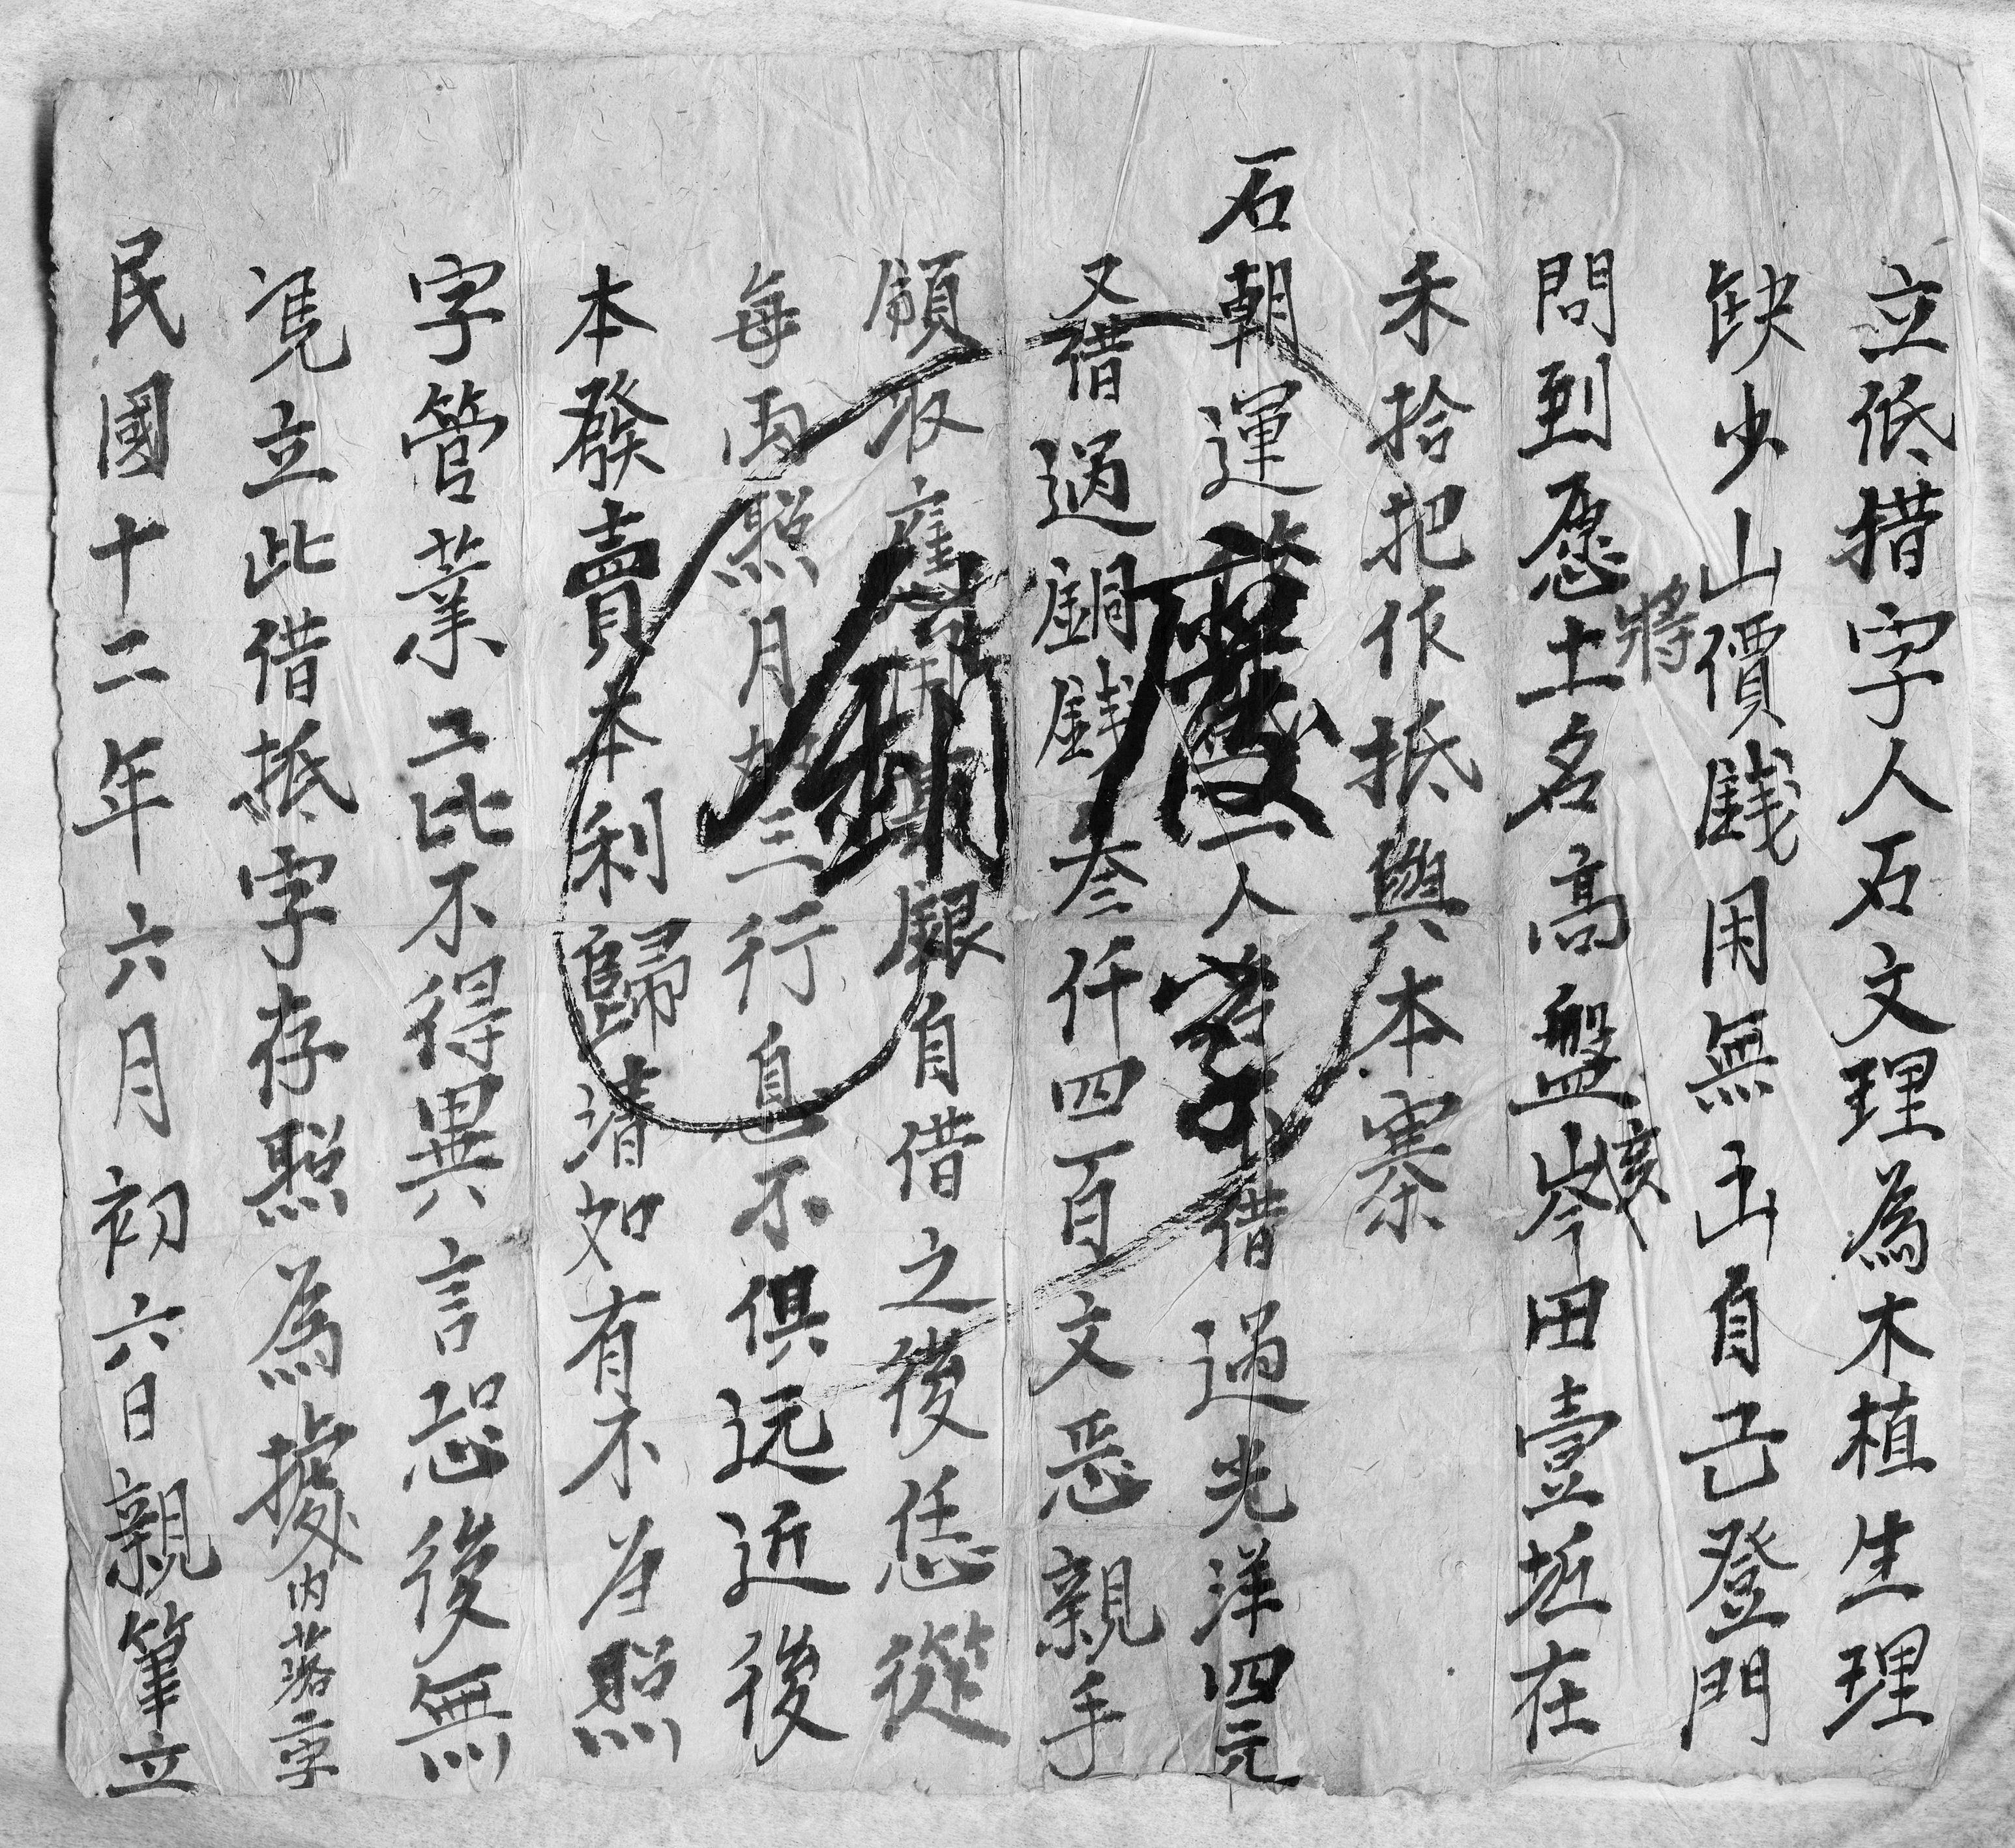 立低措字人石文理為木植生理
缺少山價銭用無出自己登門
問到愿將土名高盤岑該田壹坵在
禾拾把作抵與本寨
石朝運二人名下借過光洋四元
又借過銅銭叁仟四百文恶親手
領取應用其銀自借之後恁從
每両照月加三行息不俱远近後
本發賣本利歸清如有不為照
字管業二比不得異言恐後無
凴立此借抵字存照為據 内落二字
民國十二年六月初六日親筆立
廢紙